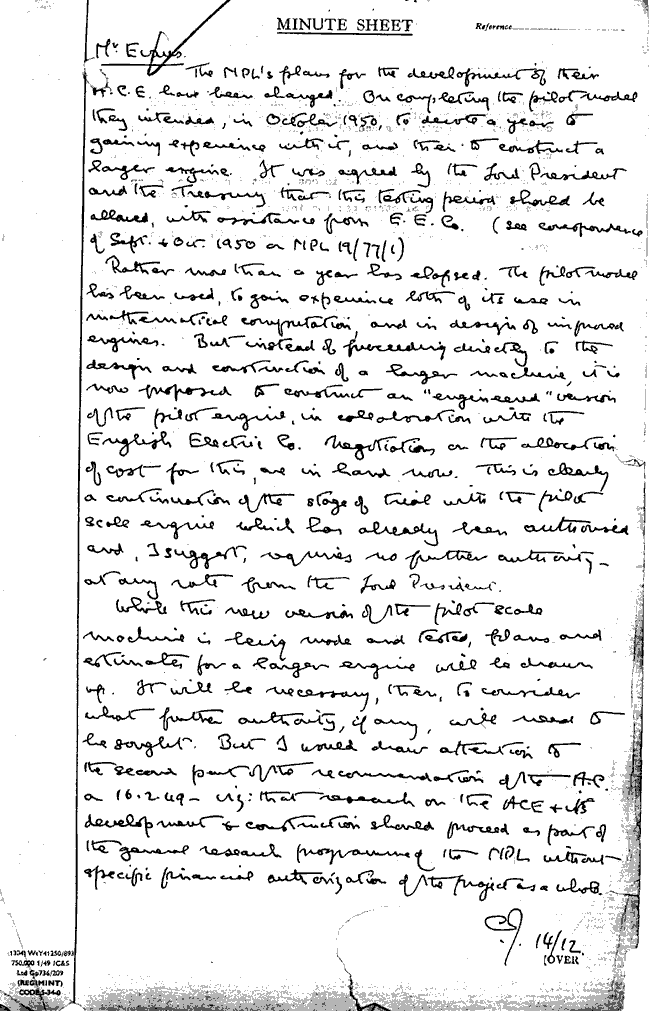 MINUTE SHEET
Reference
Mr Evans.
The NPL's plans for the development of their
A.C.E. have been changed. On completing the pilot model
they intended, in October 1950, to devote a year to
gaining experience with it, and then to construct a
larger engine. It was agreed by the Lord President
and the Treasury that this testing period should be
allowed, with assistance from E.E. Co. (see correspondence
of Sept. + Oct. 1950 on NPL 19/77/1)
Rather more than a year has elapsed. The pilot model
has been used, to gain experience both of its use in
mathematical computation, and in design of improved
engines. But instead of proceeding directly to the
design and construction of a larger machine, it is
now proposed to construct an "engineered" version
of the pilot engine, in collaboration with the
English Electric Co. Negotiations on the allocation
of cost for this, are in hand now. This is clearly
a continuation of the stage of trial with the pilot
scale engine which has already been authorised
and, I suggest, requires no further authority -
at any rate from the Lord President.
While this new version of the pilot scale
machine is being made and tested, plans and
estimates for a larger engine will be drawn
up. It will be necessary, then, to consider
what further authority, if any, will need to
be sought. But I would draw attention to
the second part of the recommendation of the A.C.
on 16.2.49 - viz: that research on the ACE + its
development & construction should proceed as part of
the general research programme of the NPL without
specific financial authorization of the project as a whole.
14/12
(OVER
(1304) Wt Y41250/893
750,000 1/49 JC&S
Ltd Gp736/209
(REGIMINT)
CODE 5-34-0